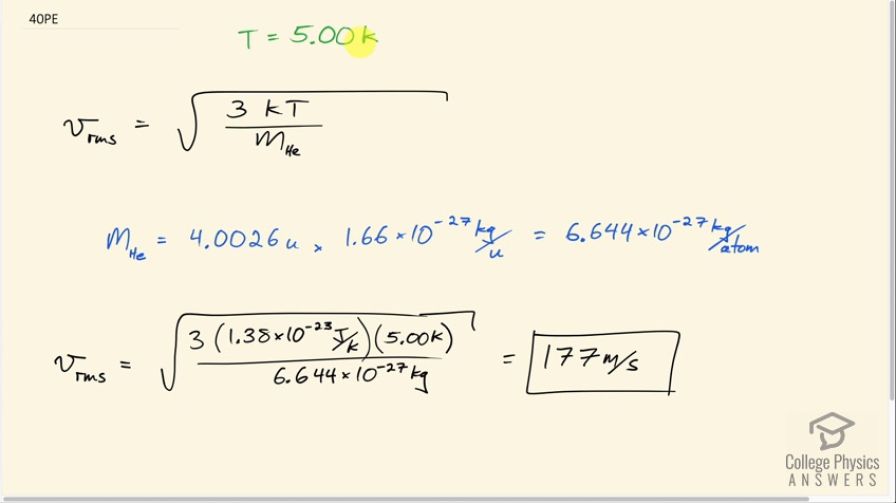 40PE
T = 5.00 k
v_rms = √(3 kT / m_He)
m_He = 4.0026 u × 1.66 × 10^-27 kg/u = 6.644 × 10^-27 kg/atom
v_rms = √(3 (1.38 × 10^-23 J/k)(5.00 k) / 6.644 × 10^-27 kg) = 177 m/s
College Physics
ANSWERS